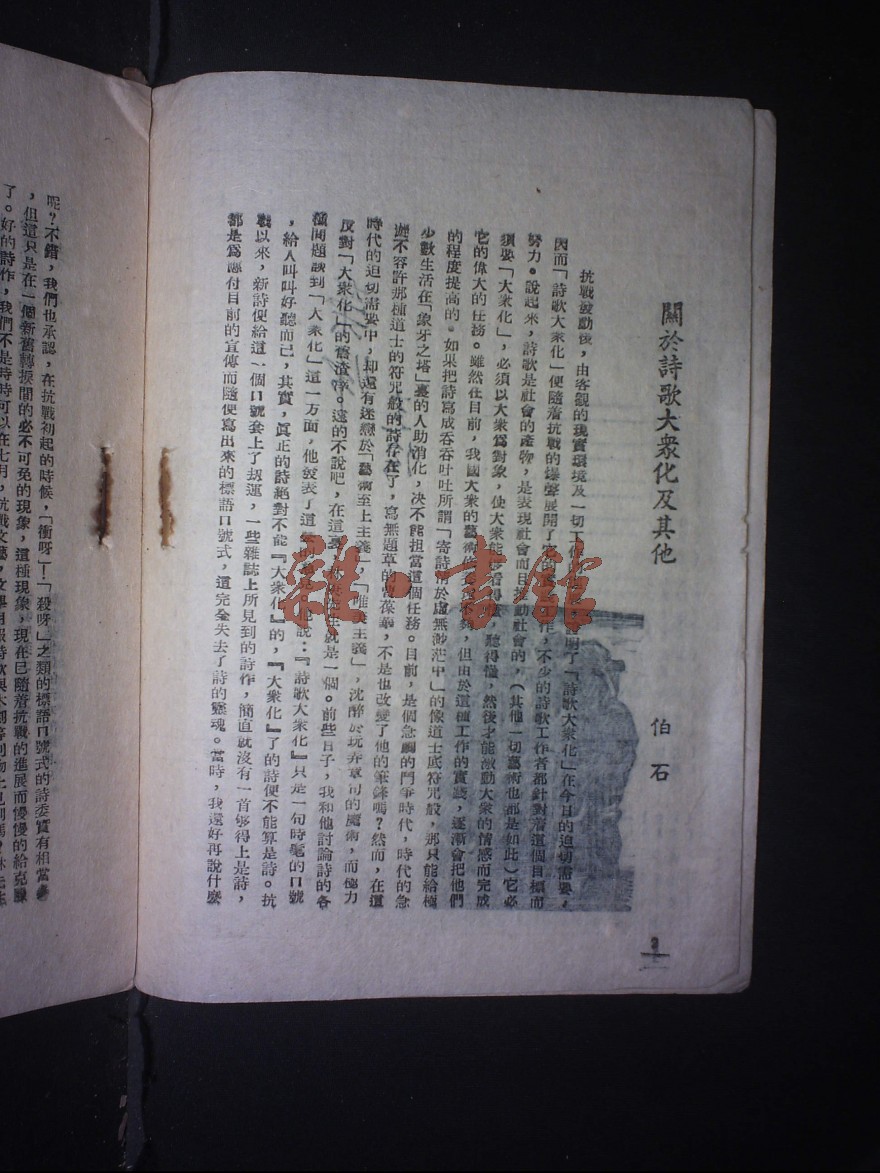 關於詩歌大衆化及其他
伯石
抗戰發動後，由客觀的現實環境及一切工作 開了「詩歌大衆化」在今日的迫切需要，
因而「詩歌大衆化」便隨着抗戰的爆聲展開了 作，不少的詩歌工作者都針對着這個目標而
努力。說起來，詩歌是社會的產物，是表現社會而且推動社會的，（其他一切藝術也都是如此）它必
須要「大衆化」，必須以大衆爲對象，使大衆能 看得懂，聽得懂，然後才能激動大衆的情感而完成
它的偉大的任務。雖然在目前，我國大衆的藝術 不夠，但由於這種工作的實踐，逐漸會把他們
的程度提高的。如果把詩寫成吞吞吐吐所謂「寄詩情於虛無渺茫中」的像道士底符咒般，那只能給極
少數生活在「象牙之塔」裏的人助消化，决不能担當這個任務。目前，是個急劇的鬥爭時代，時代的急
潮不容許那種道士的符咒般的詩存在了，寫無題草的曹葆華，不是也改變了他的筆鋒嗎？然而，在這
時代的迫切需要中，却還有迷戀於「藝術至上主義」，「唯美主義」，沈醉於玩弄章句的魔術，而極力
反對「大衆化」的舊渣滓。遠的不說吧，在這裏， 就是一個。前些日子，我和他討論詩的各
種問題談到「大衆化」這一方面，他發表了這 說：『詩歌大衆化』只是一句時髦的口號
，給人叫叫好聽而已，其實，眞正的詩絕對不能『大衆化』的，『大衆化』了的詩便不能算是詩。抗
戰以來，新詩便給這一個口號套上了刼運，一些雜誌上所見到的詩作，簡直就沒有一首够得上是詩，
都是爲應付目前的宣傳而隨便寫出來的標語口號式，這完全失去了詩的靈魂。當時，我還好再說什麼
3
呢？不錯，我們也承認，在抗戰初起的時候，「衝呀！」「殺呀」之類的標語口號式的詩委實有相當多
，但這只是在一個新舊轉捩間的必不可免的現象，這種現象，現在已隨着抗戰的進展而慢慢的給克服
了。好的詩作，我們不是時時可以在七月，抗戰文藝，文學月報
雜·書館